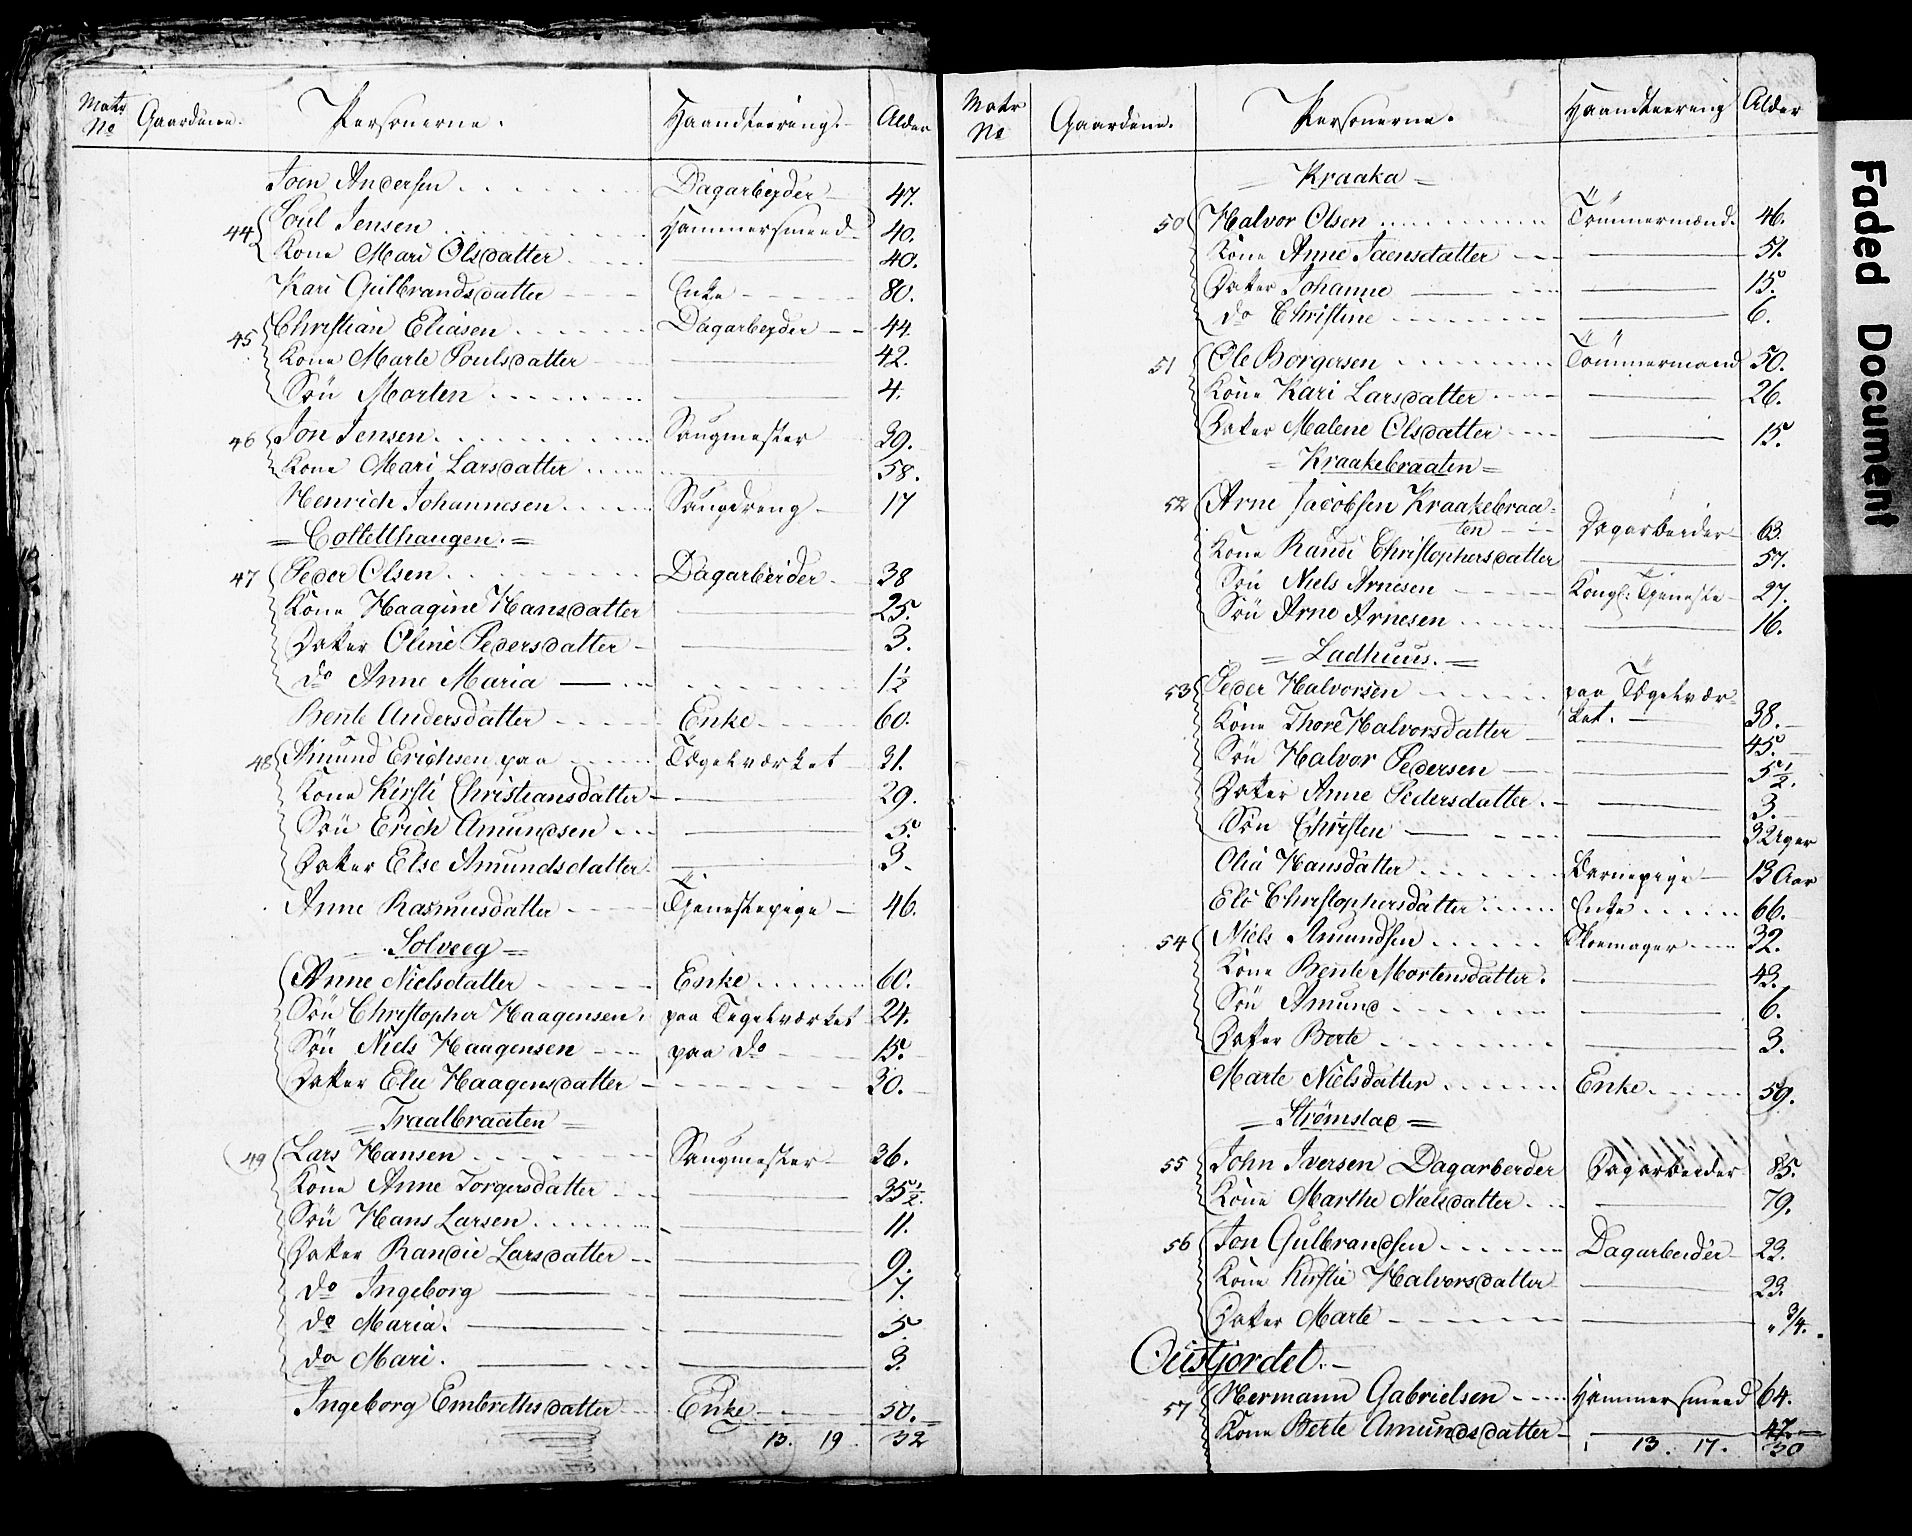 Matr No Gaardene. Personerne. Haandteering. Alder
Joen Andersen Dagarbejder 47.
44 Poul Jensen Hammersmeed 40.
Kone Mari Olsdatter 40.
Kari Gulbrandsdatter Enke 80.
45 Christian Eliasen Dagarbejder 44.
Kone Marte Poulsdatter 42.
Sön Morten 4.
46 Jon Jensen Saugmester 39.
Kone Mari Larsdatter 58.
Henrich Johannesen Saugdreng 17
= Coltetthaugen. =
47 Peder Olsen Dagarbeider 38
Kone Haagine Hansdatter 25.
Datter Oline Pedersdatter 3.
do Anne Maria 1½
Bente Andersdatter Enke 60.
48 Amund Erichsen paa Tægelværket 31.
Kone Kirsti Christiansdatter 29.
Sön Erich Amundsen 5.
Datter Else Amundsdatter 3.
Anne Rasmusdatter Tjenestepige 46.
= Solveeg =
Anne Nielsdatter Enke 60.
Sön Christopher Haagensen. paa Tegelværket 24.
Sön Niels Haagensen paa do 15.
Datter Elie Haagensdatter 30.
= Traalbraaten =
49 Lars Hansen Saugmester 36.
Kone Anne Torgersdatter 35½.
Sön Hans Larsen 11.
Datter Randie Larsdatter 9.
do Ingeborg 7.
do Maria. 5
do Mari. 3.
Ingeborg Embrethsdatter Enke 50.
13. 19. 32
Matr No Gaardene. Personerne. Haandteering Alder
= Kraaka =
50 Halvor Olsen Tömmermænd. 46.
Kone Anne Jaensdatter 51.
Datter Johanne 15.
do Christine 6.
51 Ole Borgersen Tömmermand 50.
Kone Kari Larsdatter 26.
Datter Malene Olsdatter 15.
= Kraakebraaten =
52 Arne Jacobsen Kraakebraa=
ten Dagarbeider 63.
Kone Randi Christophersdatter 57.
Sön Niels Arnesen Kongl: Tjeneste 27.
Sön Arne Arnesen 16.
= Ladhuus. =
53 Peder Halvorsen paa Tægelvær=
ket. 38.
Kone Thore Halvorsdatter 45.
Sön Halvor Pedersen 5½.
Datter Anne Pedersdatter. 3.
Sön Christen 32 Uger
Olia Hansdatter Barnepige 13 Aar
Eli Christophersdatter Enke 66.
54 Niels Amundsen Skoemager 32.
Kone Bente Mortensdatter. 43.
Sön Amund 6.
Datter Berte 3.
Marte Nielsdatter Enke 59.
= Strömstad =
55 John Iversen Dagarbeider Dagarbeider 85.
Kone Marthe Nielsdatter 79.
56 Jon Gulbrandsen Dagarbeider 23.
Kone Kirstie Halvorsdatter 23.
Datter Marte " 3/4.
Oustjordet.
57 Hermann Gabrielsen Hammersmeed 64.
Kone Berte Amundsdatter 47.
13. 17. 30
Faded Document